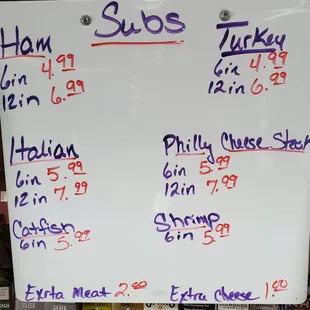 Subs
Ham
6in 4.99
12in 6.99
Turkey
6in 4.99
12in 6.99
Italian
6in 5.99
12in 7.99
Philly Cheese Steak
6in 5.99
12in 7.99
Catfish
6in 5.99
Shrimp
6in 5.99
Exrta Meat 2.00
Extra Cheese 1.00